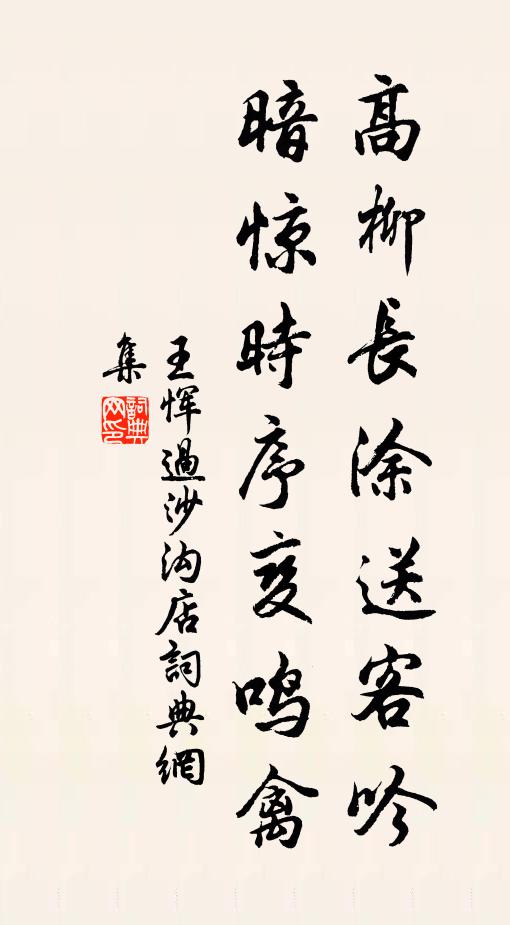 高柳長涂送客吟
暗惊時序变鸣禽
王恽過沙沟店詞典網
集
詞典
网印